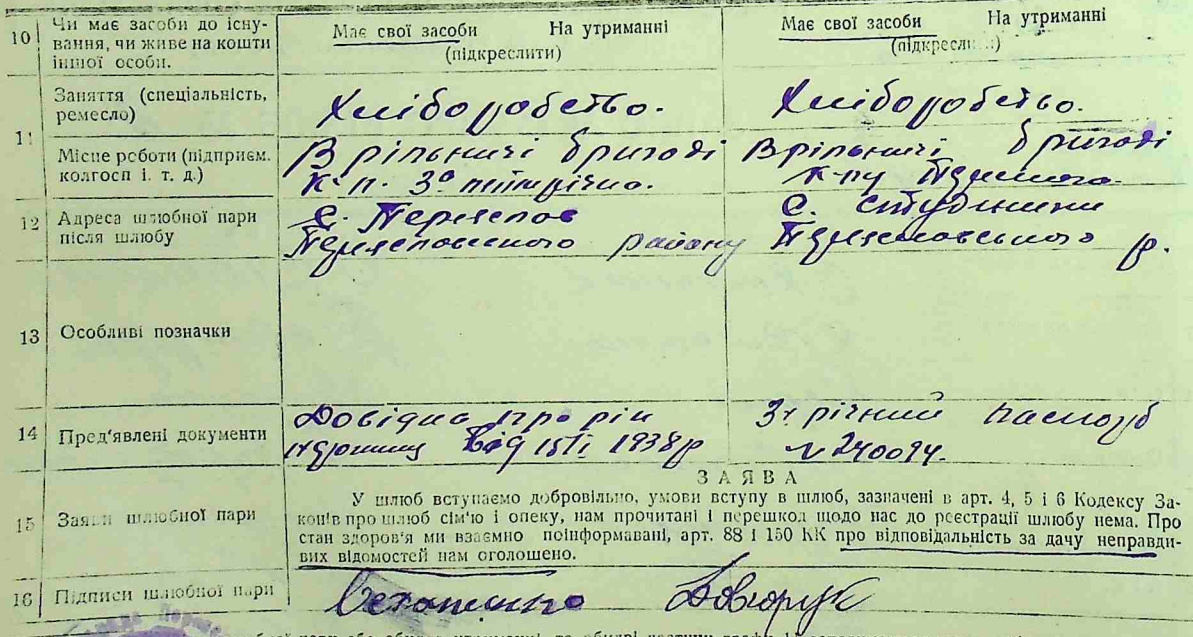 10 Чи має засоби до існування, чи живе на кошти іншої особи. Має свої засоби На утриманні (підкреслити) Має свої засоби На утриманні (підкреслити)
11 Заняття (спеціальність, ремесло) Хліборобство. Хліборобство.
Місце роботи (підприєм. колгосп і. т. д.) В рільничі бригоді к-п. 3ª пятирічка. В рільничі бригоді
12 Адреса шлюбної пари після шлюбу С. Переяслов Переяславського району С. Студеники Переяславського р.
13 Особливі позначки
14 Пред'явлені документи Довідка про рік від 15 ІІ 1938р 3х річний паспорт № 240094.
ЗАЯВА
15 Заяви шлюбної пари У шлюб вступаємо добровільно, умови вступу в шлюб, зазначені в арт. 4, 5 і 6 Кодексу За-
конів про шлюб сім'ю і опеку, нам прочитані і перешкод щодо нас до реєстрації шлюбу нема. Про
стан здоров'я ми взаємно поінформавані, арт. 88 і 150 КК про відповідальність за дачу неправди-
вих відомостей нам оголошено.
16 Підписи шлюбної пари Довгорук